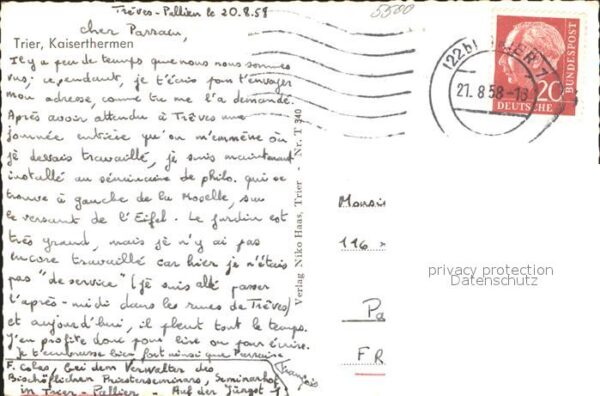 Trêves-Pallien le 20.8.58
5500
cher Parrain,
Trier, Kaiserthermen
Il y a peu de temps que nous nous sommes
vus; cependant, je t'écris pour t'envoyer
mon adresse, comme tu me l'a demandé.
Après avoir attendu à Trêves une
journée entière qu'on m'emmène où
je devais travaillé, je suis maintenant
installé au séminaire de philo. qui se
trouve à gauche de la Moselle, sur
le versant de l'Eifel. Le jardin est
très grand, mais je n'y ai pas
encore travaillé car hier je n'étais
pas "de service" (je suis allé passer
l'après-midi dans les rues de Trêves)
et aujourd'hui, il pleut tout le temps.
J'en profite donc pour lire ou pour écrire.
Je t'embrasse bien fort ainsi que Marraine
François
F. Colas, bei dem Verwalter des
Bischöflichen Priesterseminars, Seminarhof
in Trier-Pallien. Auf der Jüngst 1
Verlag Niko Haas, Trier - Nr. T 340
(22b) TRIER 1
21.8.58-18
20
DEUTSCHE
BUNDESPOST
Monsie
116
Pa
FR
privacy protection
Datenschutz